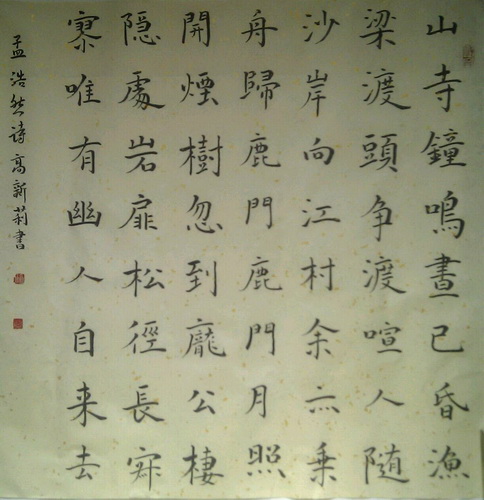 山寺鐘鳴晝已昏漁
梁渡頭争渡喧人隨
沙岸向江村余亦乘
舟歸鹿門鹿門月照
開煙樹忽到龐公棲
隐處岩扉松徑長寂
寥唯有幽人自来去
孟浩然诗高新莉書